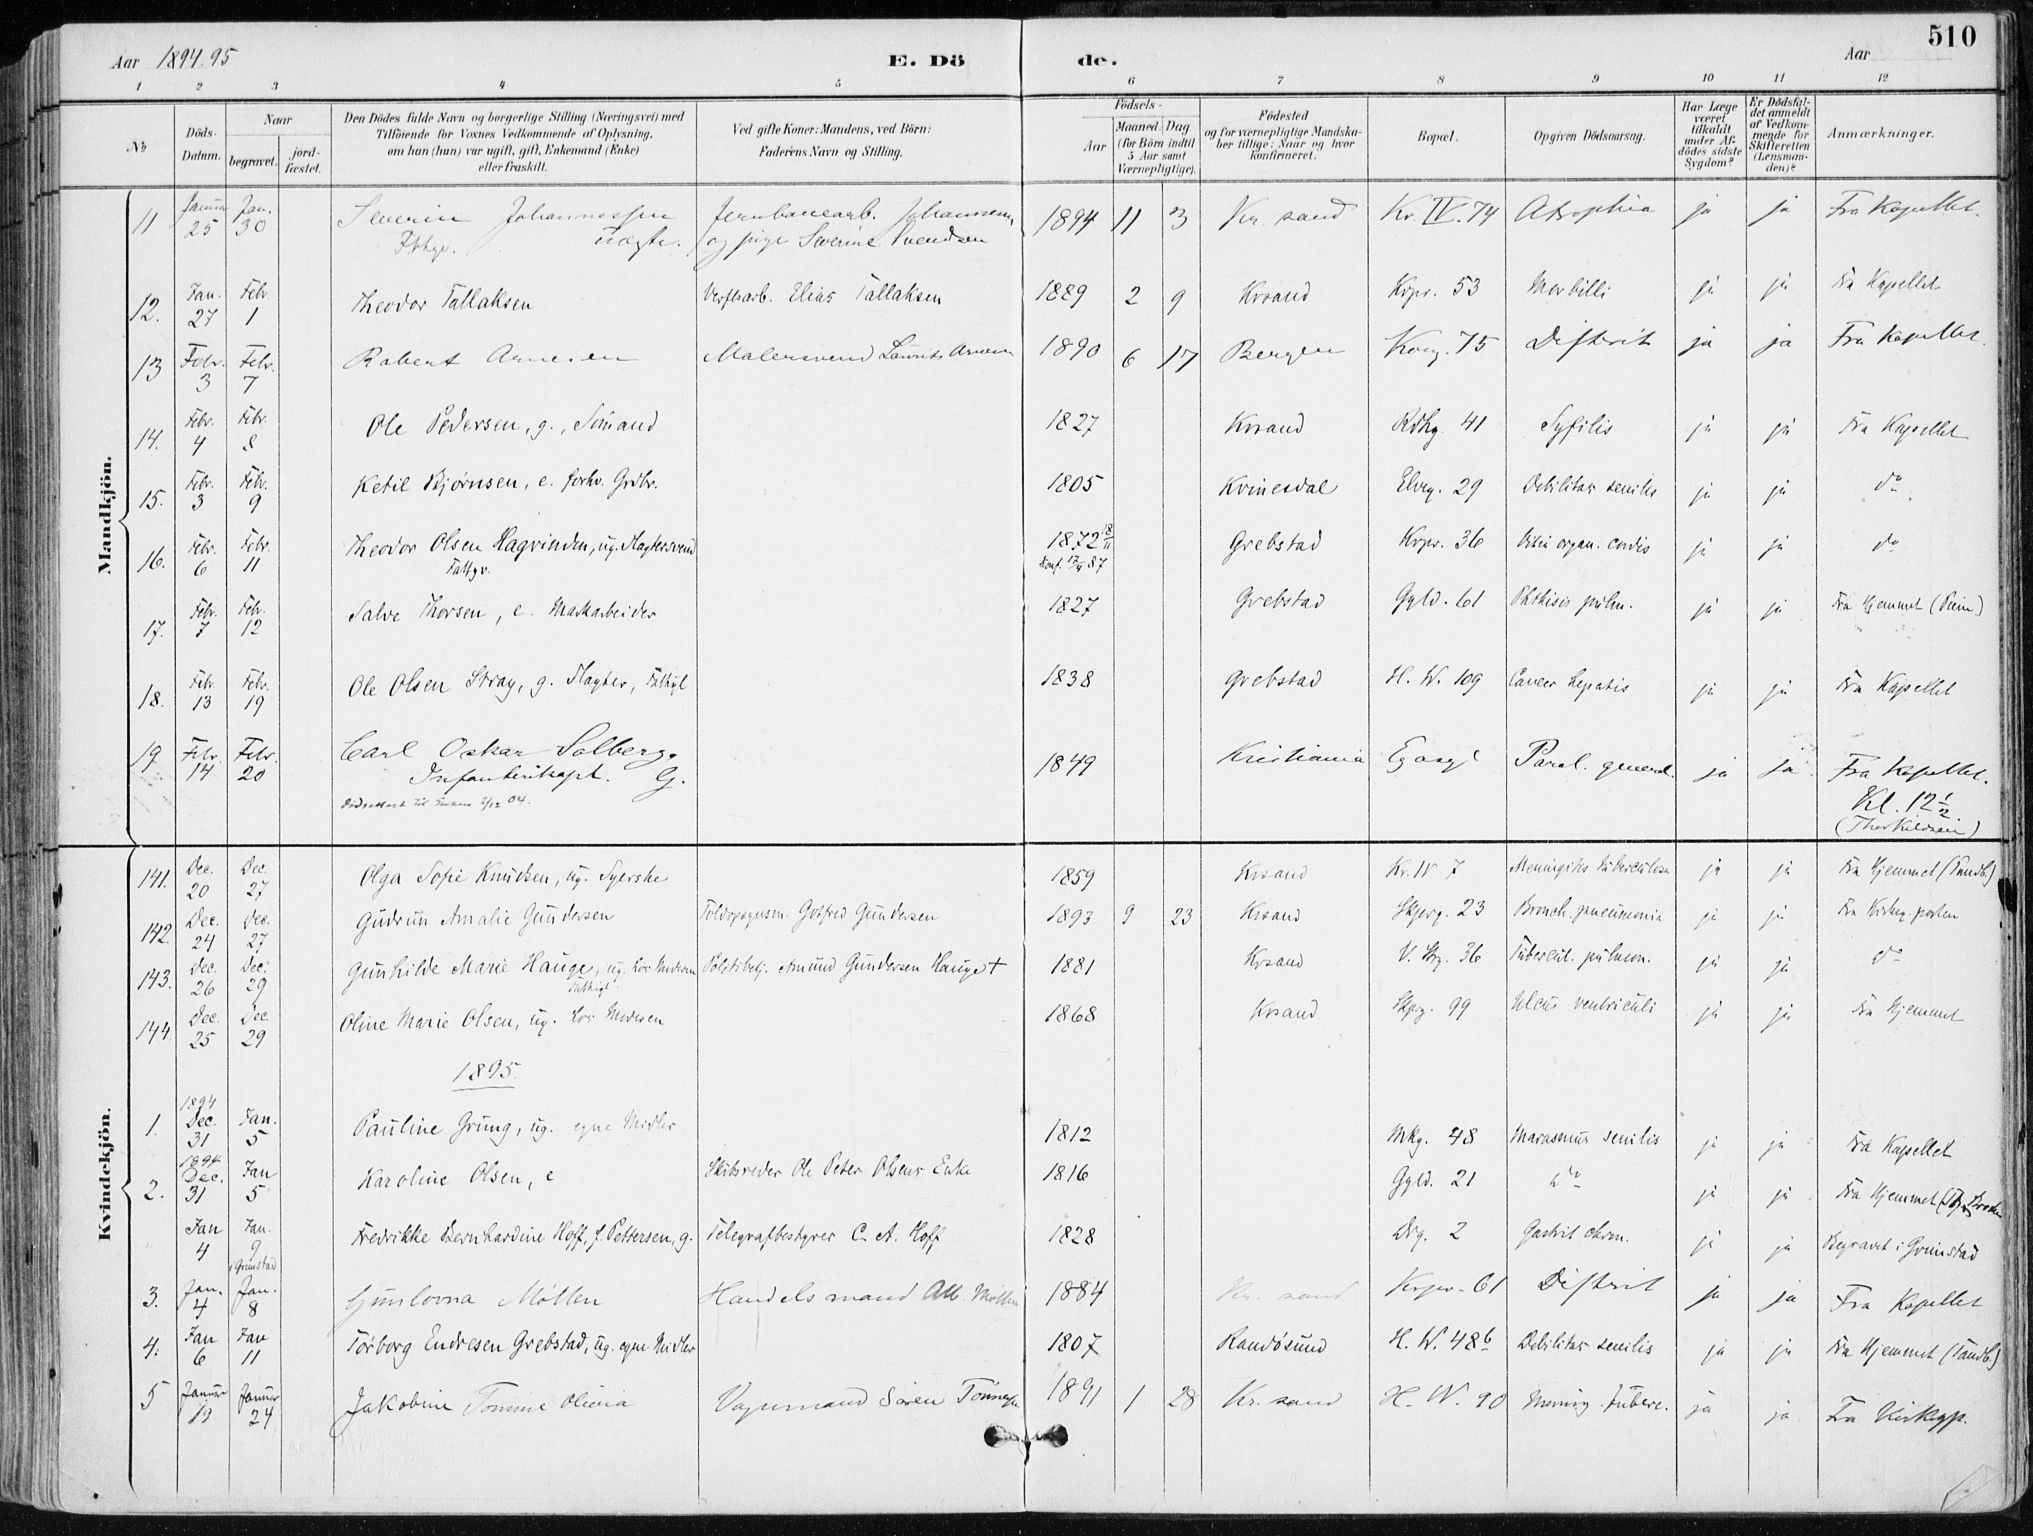 510
Aar 1894.95
E. Dö
de.
Aar
1 2 3 4 5 6 7 8 9 10 11 12
№
Döds-
Datum.
Naar
begravet.
jord-
fæstet.
Den Dödes fulde Navn og borgerlige Stilling (Næringsvei) med
Tilföiende for Voxnes Vedkommende af Oplysning,
om han (hun) var ugift, gift, Enkemand (Enke)
eller fraskilt.
Ved gifte Koner: Mandens, ved Börn:
Faderens Navn og Stilling.
Födsels-
Aar
Maaned. Dag
(for Börn indtil
5 Aar samt
Værnepligtige).
Födested
og for værnepligtige Mandska-
ber tillige: Naar og hvor
konfirmeret.
Bopæl.
Opgiven Dödsaarsag.
Har Læge
været
tilkaldt
under Af-
dödes sidste
Sygdom?
Er Dödsfal-
det anmeldt
af Vedkom-
mende for
Skifteretten
(Lensman-
den)?
Anmærkninger.
Mandkjön.
11 Januar 25 Jan. 30 Severin Johannessen Jernbanearb. Johannesen 1894 11 3 Kr. sand Kr. IV. 74 Atrophia ja ja Fra Kapellet.
Fthgv. uægte. og pige Severine Svendsen
12. Jan. 27 Febr. 1 Theodor Tallaksen Verftsarb. Elias Tallaksen 1889 2 9 Krsand Krpr. 53 Morbilli ja ja Fra Kapellet
13 Febr. 3 Febr. 7 Robert Arnesen Malersvend Lauritz Arnesen 1890 6 17 Bergen Kong. 75 Difterit ja ja Fra Kapellet.
14. Febr. 4 Febr. 8 Ole Pedersen, g., Sömand 1827 Krsand Rdhg. 41 Syfilis ja ja Fra Kapellet
15. Febr. 3 Febr. 9 Ketil Bjørnsen, e. forhv. Grdbr. 1805 Kvinesdal Elveg. 29 Debilitas senilis ja ja do
16. Febr. 6 Febr. 11 Theodor Olsen Hagvinden, ug. Slagtersvend 1872 18/11 Grebstad Krpr. 36 Vitia organ. cordis ja ja do
Fattgv. Konf. 87
17. Febr. 7 Febr. 12 Salve Thorsen, e. Maskarbeider 1827 Grebstad Gyld. 61 Phthisis pulm. ja ja Fra Hjemmet
18. Febr. 13 Febr. 19 Ole Olsen Stray, g. Slagter, Fattigl 1838 Grebstad H. W. 109 Cancer hepatis ja ja Fra Kapellet
19 Febr. 14 Febr. 20 Carl Oskar Solberg. 1849 Kristiania Paral. general. ja ja Fra Kapellet.
Infanterikapt. G. Kl. 12 1/2
Dödsattest til Enken 04. (Thorkildsen)
Kvindekjön.
141. Dec. 20 Dec. 27 Olga Sofie Knudsen, ug. Syerske 1859 Krsand Kr. IV 7 Meningitis tuberculosa ja ja Fra Hjemmet (Tandb.)
142. Dec. 24 Dec. 27 Gudrun Amalie Gundersen Toldopsynsm. Gotfred Gundersen 1893 9 23 Krsand Skperg. 23 Bronch. pneumonia ja ja Fra Kirkeg. porten
143. Dec. 26 Dec. 29 Gunhilde Marie Hauge, ug. hos Moderen Politibetj. Amund Gundersen Hauge + 1881 Krsand V. Strg. 36 Tubercul. pulmon. ja ja do
Fattigl
144. Dec. 25 Dec. 29 Oline Marie Olsen, ug. hos Moderen 1868 Krsand Skprg. 99 Ulcus ventriculi ja ja Fra Hjemmet
1895.
1. 1894 Dec. 31 Jan. 5 Pauline Grung, ug. egne Midler 1812 Mkg. 48 Marasmus senilis ja ja Fra Kapellet
2. 1894 Dec. 31 Jan 5 Karoline Olsen, e Skibsreder Ole Peter Olsens Enke 1816 Gyld. 21 do ja ja Fra Hjemmet
Jan 4 Jan. 9 i Grimstad Fredrikke Bernhardine Hoff, f. Pettersen, g. Telegrafbestyrer C. A. Hoff 1828 Drg. 2 Gastrit chron. ja ja Begravet i Grimstad
3. Jan. 4 Jan. 8 Gunlovna Møllen Handelsmand Alb. Møllen 1884 Kr. sand Krpr. 61 Difterit ja ja Fra Kapellet
4. Jan 6 Jan 11 Torborg Endresen Grebstad, ug. egne Midler 1807 Randøsund H. W. 48b Debilitas senilis ja ja Fra Hjemmet (Tandb.)
5 Januar 19 Januar 24 Jakobine Tomine Olivia Vognmand Sören Tönnesen 1891 1 28 Kr. sand H. W. 90 Mening. tuberc. ja ja Fra Kirkegp.